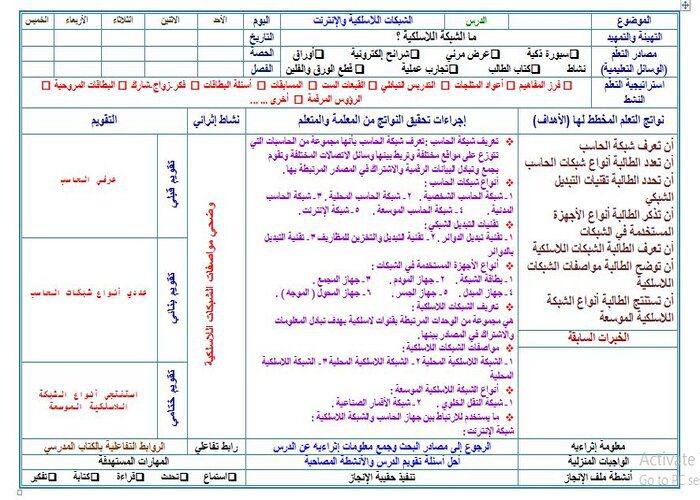 الموضوع
الدرس
الشبكات اللاسلكية والإنترنت
اليوم
الأحد
الاثنين
الثلاثاء
الأربعاء
الخميس
التهيئة والتمهيد
ما الشبكة اللاسلكية ؟
التاريخ
مصادر التعلم
سبورة ذكية
عرض مرئي
شرائح إلكترونية
أوراق
الحصة
(الوسائل التعليمية)
نشاط
كتاب الطالب
تجارب عملية
قطع الورق والفلين
الفصل
استراتيجية التعلم
النشط
فرز المفاهيم
أعواد المثلجات
التدريس التبادلي
القبعات الست
المسابقات
أسئلة البطاقات
فكر-زواج-شارك
البطاقات المروحية
الرؤوس المرقمة
أخرى ... ...
نواتج التعلم المخطط لها (الأهداف)
إجراءات تحقيق النواتج من المعلمة والمتعلم
نشاط إثرائي
التقويم
أن تعرف شبكة الحاسب
أن تعدد الطالبة أنواع شبكات الحاسب
أن تحدد الطالبة تقنيات التبديل
الشبكي
أن تذكر الطالبة أنواع الأجهزة
المستخدمة في الشبكات
أن تعرف الطالبة الشبكات اللاسلكية
أن توضح الطالبة مواصفات الشبكات
اللاسلكية
أن تستنتج الطالبة أنواع الشبكة
اللاسلكية الموسعة
الخبرات السابقة
تعريف شبكة الحاسب :تعرف شبكة الحاسب بأنها مجموعة من الحاسبات التي
تتوزع على مواقع مختلفة وتربط بينها وسائل الاتصالات المختلفة وتقوم
بجمع وتبادل البيانات الرقمية والاشتراك في المصادر المرتبطة بها.
أنواع شبكات الحاسب :
١- شبكة الحاسب الشخصية . ٢ - شبكة الحاسب المحلية . ٣- شبكة الحاسب
المدنية . ٤ - شبكة الحاسب الموسعة . ٥ - شبكة الإنترنت .
تقنيات التبديل الشبكي :
١- تقنية تبديل الدوائر . ٢ - تقنية التبديل والتخزين للمظاريف ٣- تقنية التبديل
بالدوائر
أنواع الأجهزة المستخدمة في الشبكات :
١- بطاقة الشبكة . ٢ - جهاز المودم . ٣ - جهاز المجمع .
٤- جهاز المبدل . ٥ - جهاز الجسر . ٦ - جهاز المحول ( الموجه ) .
تعريف الشبكات اللاسلكية :
هي مجموعة من الوحدات المرتبطة بقنوات لاسلكية بهدف تبادل المعلومات
والاشتراك في المصادر بينها.
مواصفات الشبكات اللاسلكية :
١- الشبكة اللاسلكية المحلية ٢ - الشبكة اللاسلكية المحلية ٣ - الشبكة اللاسلكية
المحلية
أنواع الشبكة اللاسلكية الموسعة :
١- شبكة النقل الخلوي . ٢ - شبكة الأقمار الصناعية .
ما يستخدم للارتباط بين جهاز الحاسب والشبكة اللاسلكية :
شبكة الإنترنت :
وضحي مواصفات الشبكات اللاسلكية
تقويم قبلي
عرفي الحاسب
تقويم بنائي
عددي أنواع شبكات الحاسب
تقويم ختامي
استنتجي أنواع الشبكة
اللاسلكية الموسعة
معلومة إثرائية
الرجوع إلى مصادر البحث وجمع معلومات إثرائية عن الدرس
رابط تفاعلي
الروابط التفاعلية بالكتاب المدرسي
الواجبات المنزلية
أحل أسئلة تقويم الدرس والأنشطة المصاحبة
المهارات المستهدفة
أنشطة ملف الإنجاز
تنفيذ حقيبة الإنجاز
استماع
تحدث
قراءة
كتابة
تفكير
Activate
Go to PC se